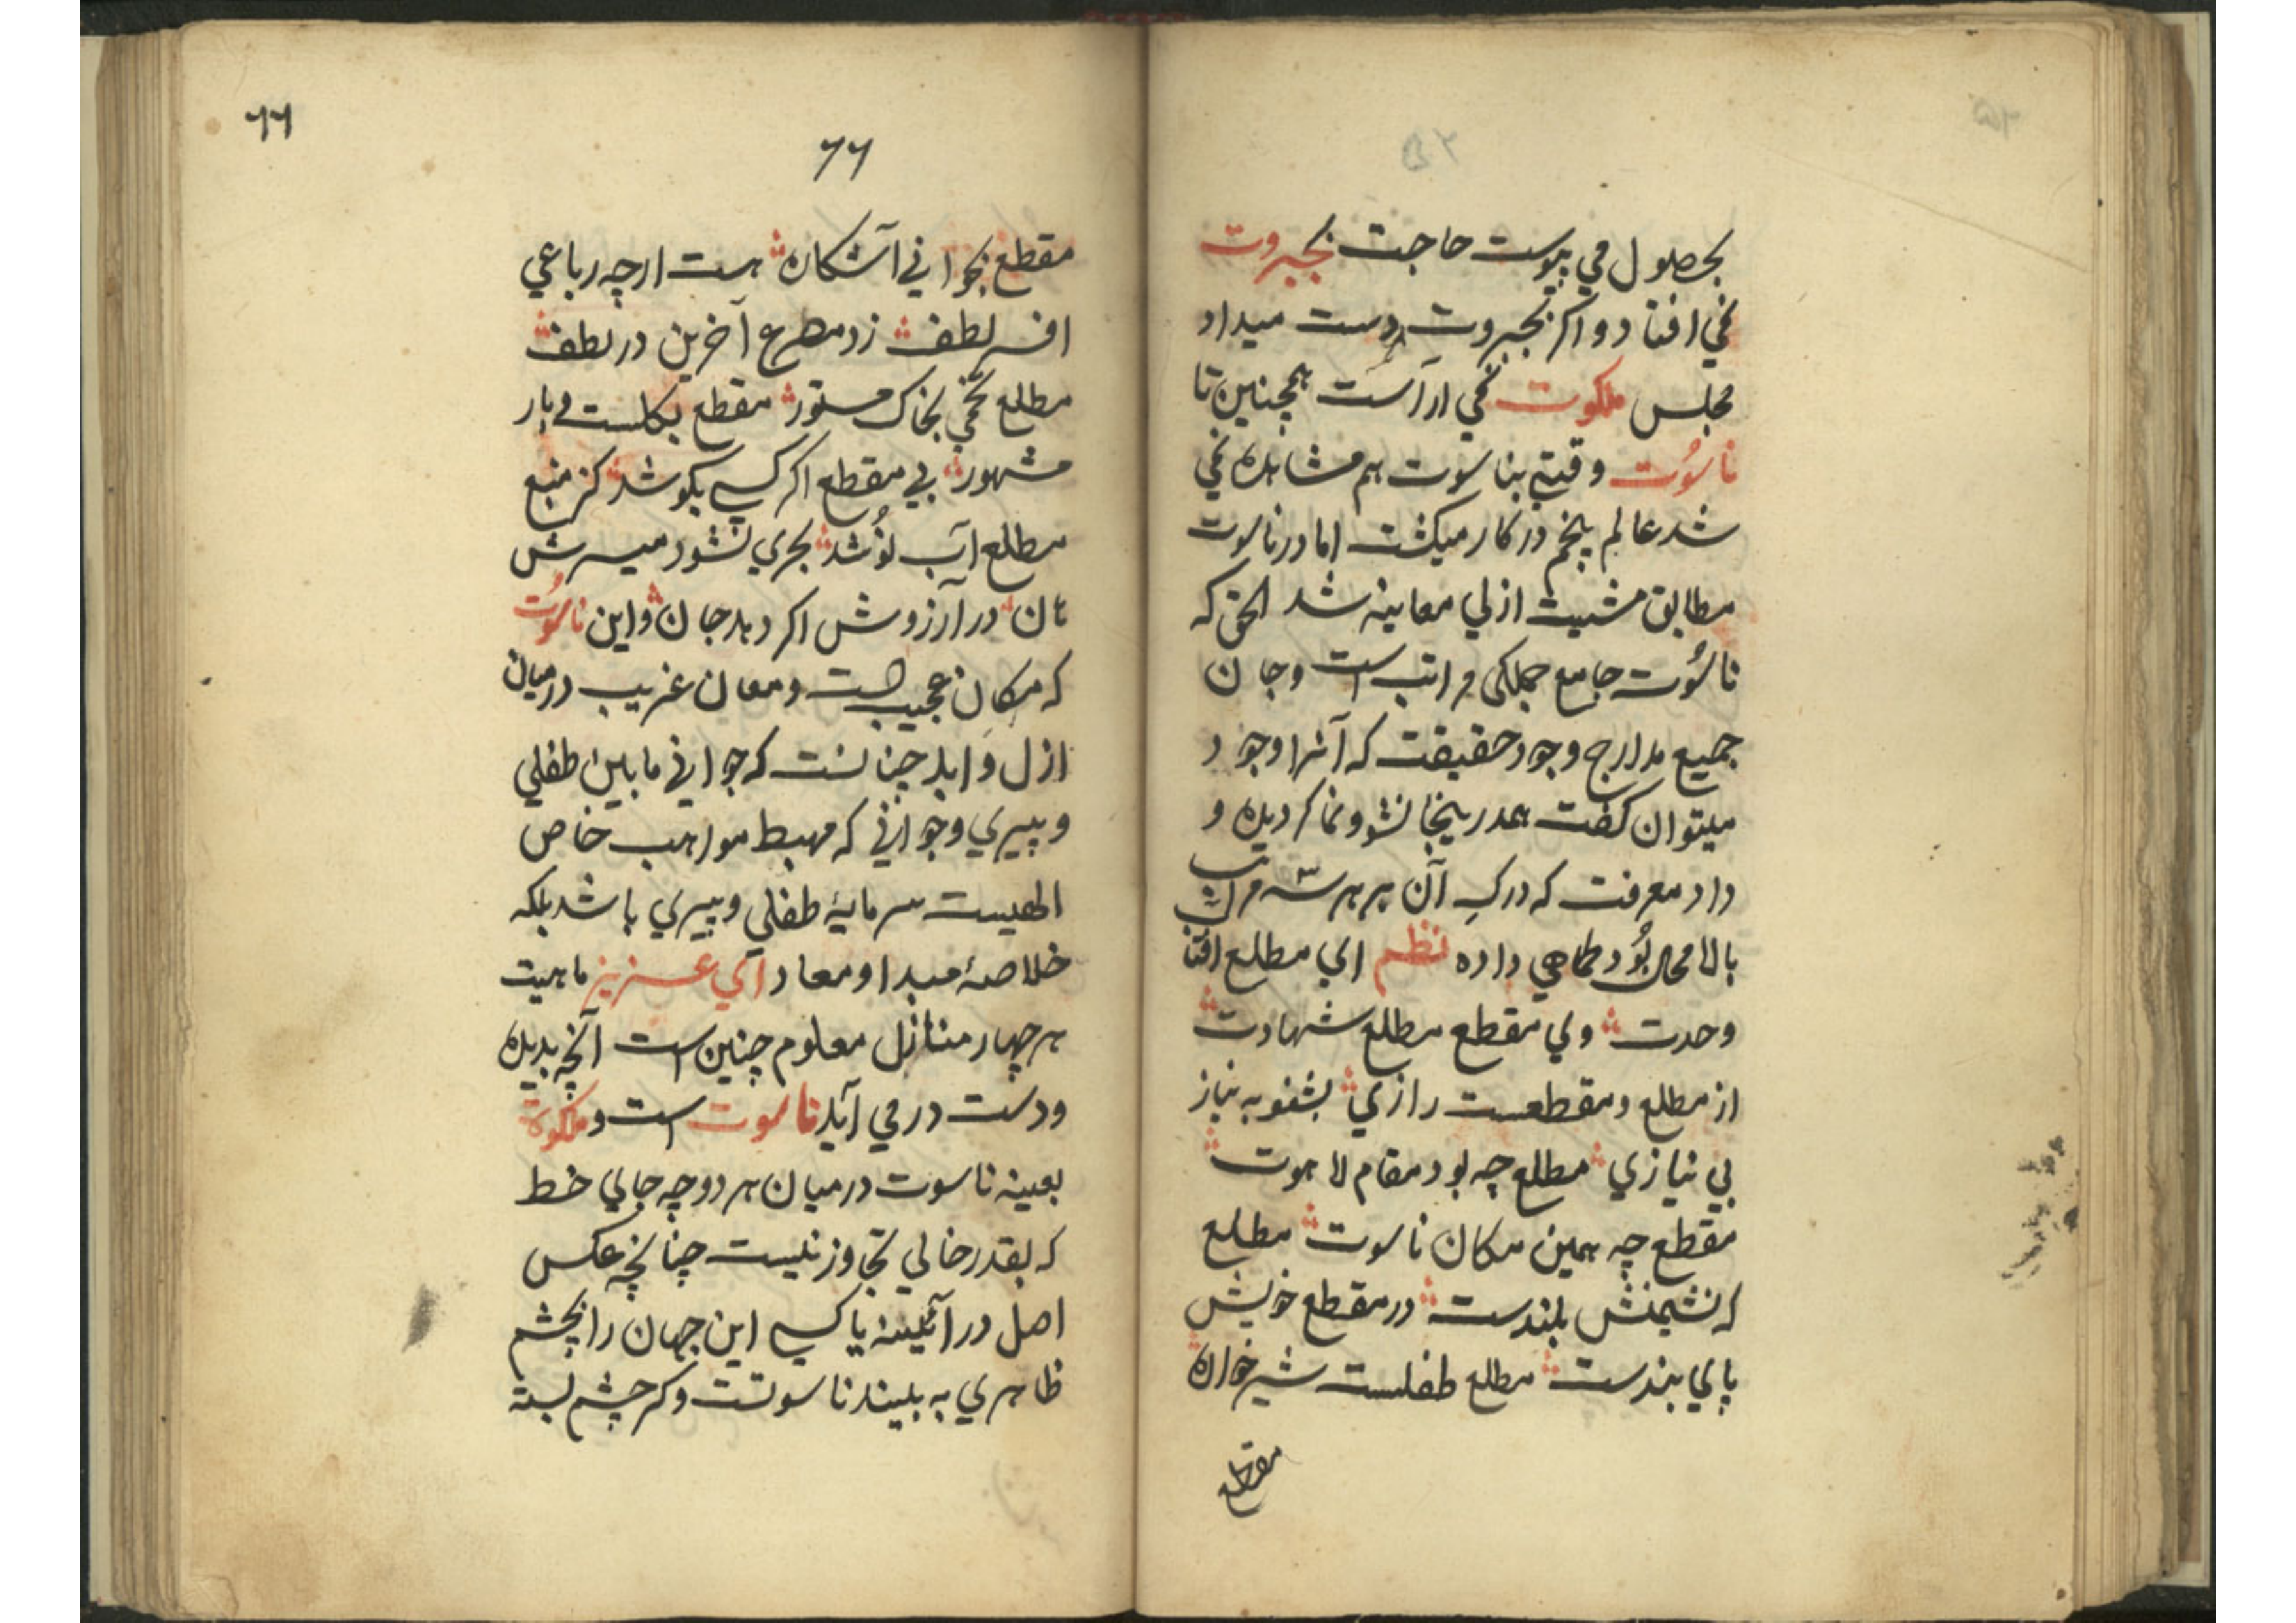 بحصول می پیوست حاجت بجبروت
نمی افتاد و اکر بجبروت دست میداد
مجلس ملکوت نمی اراست همچنین تا
ناسُوت وقتی بناسوت هم مشاهده نمی
شد عالم پنجم در کار میکشت اما در ناسوت
مطابق مشیت ازلی معاینه شد الحق که
ناسُوت جامع جملکی مراتب است و جان
جمیع مدارج وجود حقیقت که آنرا وجود
میتوان کفت همدرینجا نشو و نما کردیده و
داد معرفت که درکِ آن بر هر سه مراتب
بالا محال بُود کماهی داده نظم ای مطلع افتاب
وحدت وی مقطع مطلع شهادت
از مطلع و مقطعست رازی بشنو به نیاز
بی نیازی مطلع چه بود مقام لاهوت
مقطع چه همین مکان ناسوت مطلع
که نشیمنش بلندست در مقطع خویش
پای بندست مطلع طفلست شیرخواره
مقطع
٦٦
٦٦
مقطع بجوانی آشکاره هست ارچه رباعی
افسر لطف زد مصرع آخرین در لطف
مطلع تخمی بخاک مستور مقطع بکلست و بار
مشهور بی مقطع اکر کسی بکوشد کز منبع
مطلع آب نُوشد بحری نشود میسرش
نان در آرزوش اکر دهد جان و این ناسُوت
که مکان عجیب هست و معان غریب درمیان
ازل و ابد چنانست که جوانی مابین طفلی
و پیری و جوانی که مهبط مواهب خاص
الهیست سرمایهٔ طفلی و پیری باشد بلکه
خلاصهٔ مبدا و معاد ای عزیز ماهیت
هر چهار منازل معلوم چنین است آنچه بدیده
و دست در می آید ناسوت است و ملکوت
بعینه ناسوت درمیان هر دو چه جای خط
که بقدر خالی تجاوز نیست چنانچه عکس
اصل در آئینه یا کسی این جهان را بچشم
ظاهری به بیند ناسوتست و کر چشم بسته